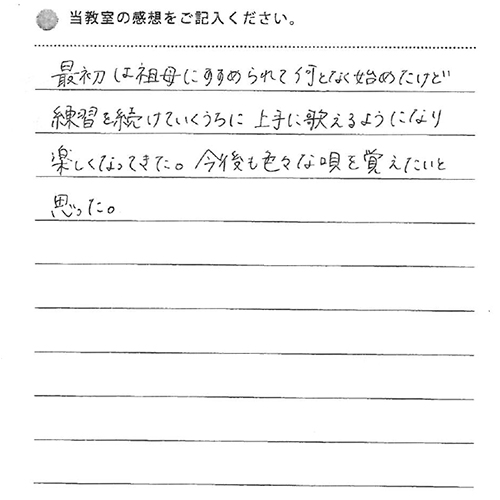 当教室の感想をご記入ください。
最初は祖母にすすめられて何となく始めたけど
練習を続けていくうちに上手に歌えるようになり
楽しくなってきた。今後も色々な唄を覚えたいと
思った。